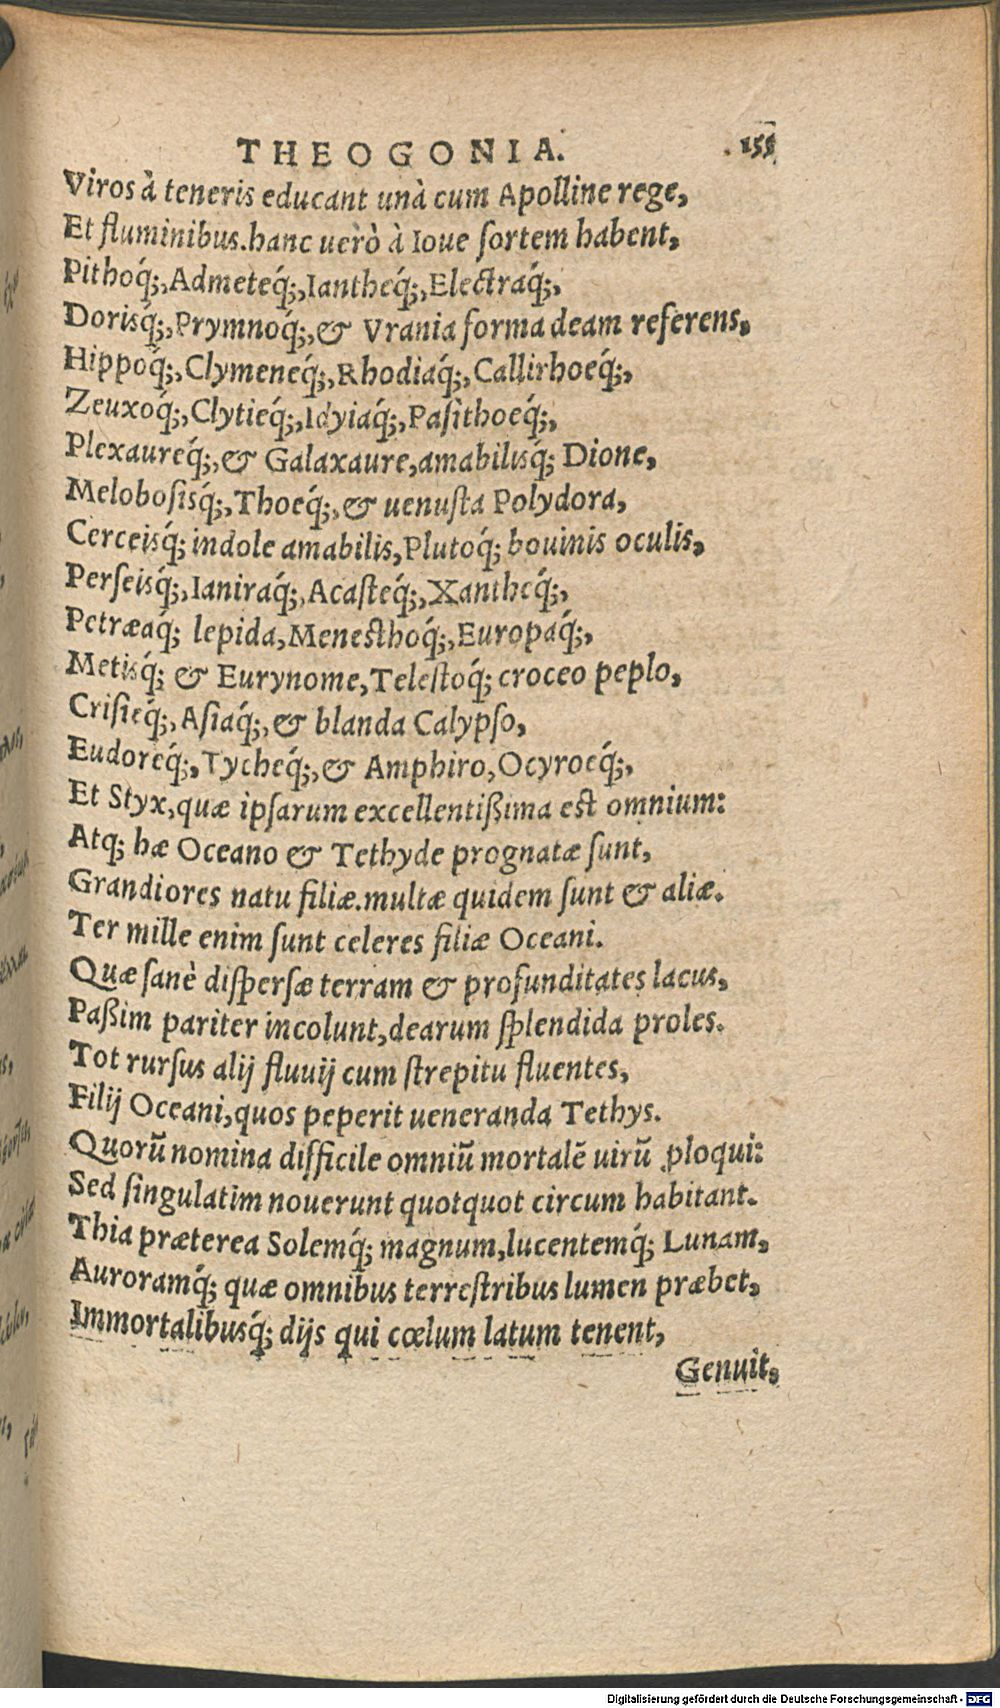 THEOGONIA. 155
Viros à teneris educant unà cum Apolline rege,
Et fluminibus.hanc uerò à Ioue ſortem habent,
Pithoq́;,Admeteq́;,Iantheq́;,Electraq́;,
Dorisq́;,Prymnoq́;,& Vrania forma deam referens,
Hippoq́;,Clymeneq́;,Rhodiaq́;,Callirhoeq́;,
Zeuxoq́;,Clytieq́;,Idyiaq́;,Paſithoeq́;,
Plexaureq́;,& Galaxaure,amabilisq́; Dione,
Meloboſisq́;,Thoeq́;,& uenuſta Polydora,
Cerceisq́; indole amabilis,Plutoq́; bouinis oculis,
Perſeisq́;,Ianiraq́;,Acaſteq́;,Xantheq́;,
Petræaq́; lepida,Menesthoq́;,Europaq́;,
Metisq́; & Eurynome,Teleſtoq́; croceo peplo,
Criſieq́;,Aſiaq́;,& blanda Calypſo,
Eudoreq́;,Tycheq́;,& Amphiro,Ocyroeq́;,
Et Styx,quæ ipſarum excellentißima est omnium:
Atq; hæ Oceano & Tethyde prognatæ ſunt,
Grandiores natu filiæ.multæ quidem ſunt & aliæ.
Ter mille enim ſunt celeres filiæ Oceani.
Quæ ſanè diſperſæ terram & profunditates lacus,
Paßim pariter incolunt,dearum ſplendida proles.
Tot rurſus alij fluuij cum ſtrepitu fluentes,
Filij Oceani,quos peperit ueneranda Tethys.
Quorũ nomina difficile omniũ mortalẽ uirũ ꝓloqui:
Sed ſingulatim nouerunt quotquot circum habitant.
Thia præterea Solemq́; magnum,lucentemq́; Lunam,
Auroramq́; quæ omnibus terrestribus lumen præbet,
Immortalibusq́; dijs qui cœlum latum tenent,
Genuit,
Digitalisierung gefördert durch die Deutsche Forschungsgemeinschaft - DFG